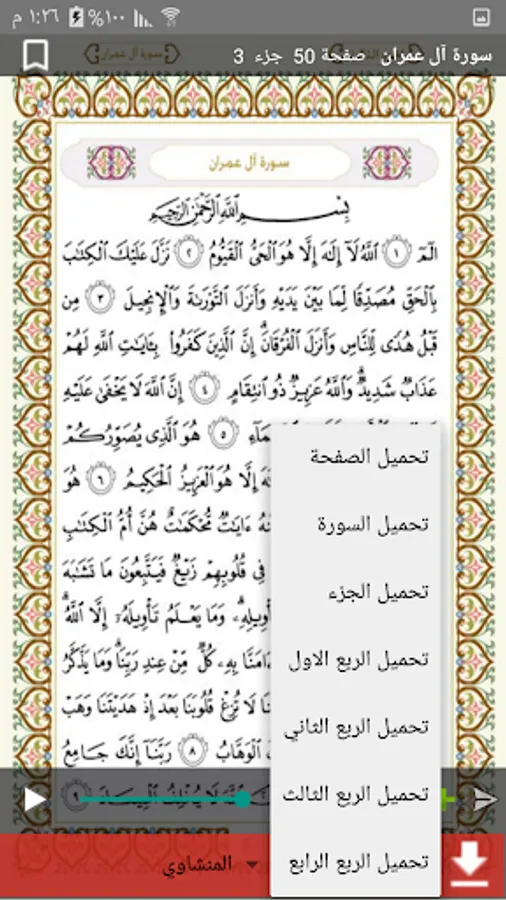 ١:٢٦ م ١٠٠%
سورة آل عمران صفحة 50 جزء 3
سورة آل عمران
سورة آل عمران
بِسْمِ اللَّهِ الرَّحْمَٰنِ الرَّحِيمِ
الٓمٓ ١ اللَّهُ لَآ إِلَٰهَ إِلَّا هُوَ الْحَيُّ الْقَيُّومُ ٢ نَزَّلَ عَلَيْكَ الْكِتَٰبَ
بِالْحَقِّ مُصَدِّقًا لِّمَا بَيْنَ يَدَيْهِ وَأَنزَلَ التَّوْرَىٰةَ وَالْإِنجِيلَ ٣ مِن
قَبْلُ هُدًى لِّلنَّاسِ وَأَنزَلَ الْفُرْقَانَ إِنَّ الَّذِينَ كَفَرُوا بِـَٔايَٰتِ اللَّهِ لَهُمْ
عَذَابٌ شَدِيدٌ وَاللَّهُ عَزِيزٌ ذُو انتِقَامٍ ٤ إِنَّ اللَّهَ لَا يَخْفَىٰ عَلَيْهِ
٥ هُوَ الَّذِي يُصَوِّرُكُمْ
إِلَّا هُوَ الْعَزِيزُ الْحَكِيمُ ٦ هُوَ
ءَايَٰتٌ مُّحْكَمَٰتٌ هُنَّ أُمُّ الْكِتَٰبِ
فِي قُلُوبِهِمْ زَيْغٌ فَيَتَّبِعُونَ مَا تَشَٰبَهَ
وَمَا يَعْلَمُ تَأْوِيلَهُۥٓ إِلَّا اللَّهُ
ءَامَنَّا بِهِۦ كُلٌّ مِّنْ عِندِ رَبِّنَا وَمَا يَذَّكَّرُ
لَا تُزِغْ قُلُوبَنَا بَعْدَ إِذْ هَدَيْتَنَا وَهَبْ
الْوَهَّابُ ٨ رَبَّنَآ إِنَّكَ جَامِعُ
لَا يُخْلِفُ الْمِيعَادَ ٩
تحميل الصفحة
تحميل السورة
تحميل الجزء
تحميل الربع الاول
تحميل الربع الثاني
تحميل الربع الثالث
تحميل الربع الرابع
المنشاوي